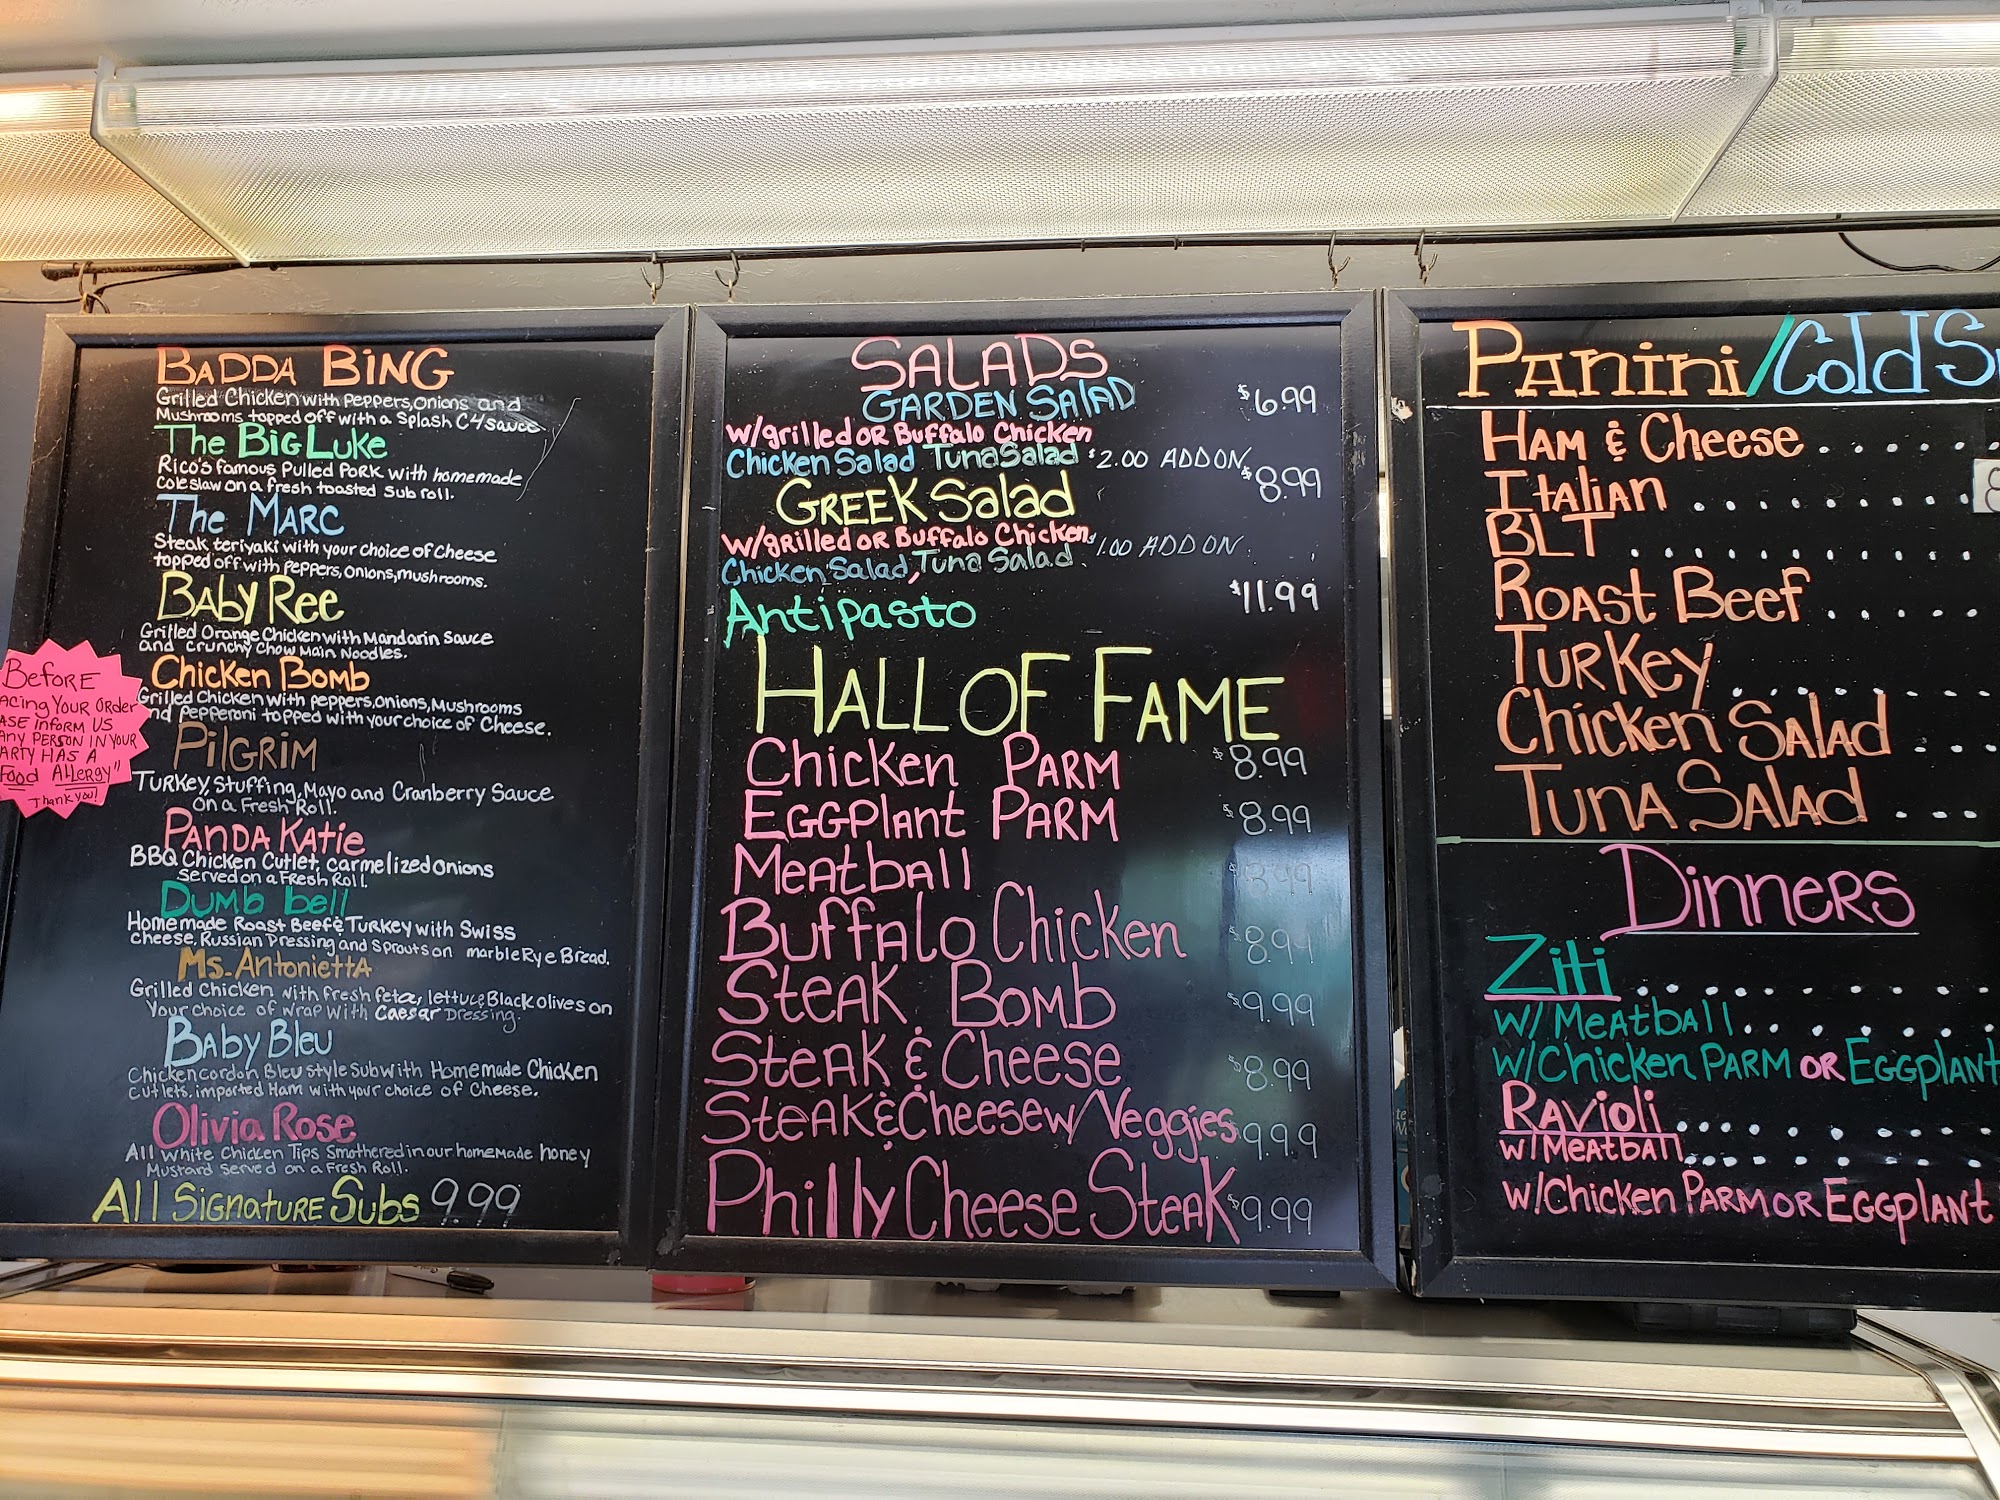 BADDA BING
Grilled Chicken with Peppers, Onions and
Mushrooms topped off with a Splash C4 Sauce
The Big Luke
Rico's famous Pulled Pork with homemade
Coleslaw on a fresh toasted Sub roll.
The MARC
Steak teriyaki with your choice of cheese
topped off with peppers, onions, mushrooms.
Baby Ree
Grilled Orange Chicken with Mandarin Sauce
and Crunchy Chow Main Noodles.
Chicken Bomb
Grilled Chicken with peppers, onions, Mushrooms
nd Pepperoni topped with your choice of Cheese.
Pilgrim
Turkey, Stuffing, Mayo and Cranberry Sauce
on a Fresh Roll.
Panda Katie
BBQ Chicken Cutlet, Carmelized Onions
Served on a Fresh Roll.
Dumb bell
Homemade Roast Beef & Turkey with Swiss
cheese, Russian Dressing and Sprouts on marble Rye Bread.
Ms. Antonietta
Grilled Chicken with fresh feta, lettuce, Black olives on
Your choice of wrap with Caesar Dressing.
Baby Bleu
Chicken cordon Bleu style Sub with Homemade Chicken
Cutlets, imported Ham with your choice of Cheese.
Olivia Rose
All White Chicken Tips Smothered in our homemade honey
Mustard served on a Fresh Roll.
All Signature Subs 9.99
Before
acing Your Order
ase inform us
any person in your
arty has a
Food Allergy"
Thank you!
SALADS
GARDEN SALAD $6.99
w/grilled or Buffalo Chicken
Chicken Salad Tuna Salad $2.00 ADD ON
GREEK Salad $8.99
w/grilled or Buffalo Chicken
Chicken Salad, Tuna Salad $1.00 ADD ON
Antipasto $11.99
HALL OF FAME
Chicken PARM $8.99
Eggplant PARM $8.99
Meatball 8.99
Buffalo Chicken $8.99
Steak Bomb $9.99
Steak & Cheese $8.99
Steak & Cheese w/ Veggies $9.99
Philly Cheese Steak $9.99
Panini/Cold S
Ham & Cheese . . . . . .
Italian . . . . . . . . . 8
BLT . . . . . . . . . . .
Roast Beef . . . . .
Turkey . . . . . . . . .
Chicken Salad . . .
Tuna Salad . . .
Dinners
Ziti . . . . . . . . . .
w/ Meatball . . . . . . . .
w/Chicken Parm or Eggplant
Ravioli . . . . . . . . . .
w/ Meatball . . . . . . . . .
w/Chicken Parm or Eggplant